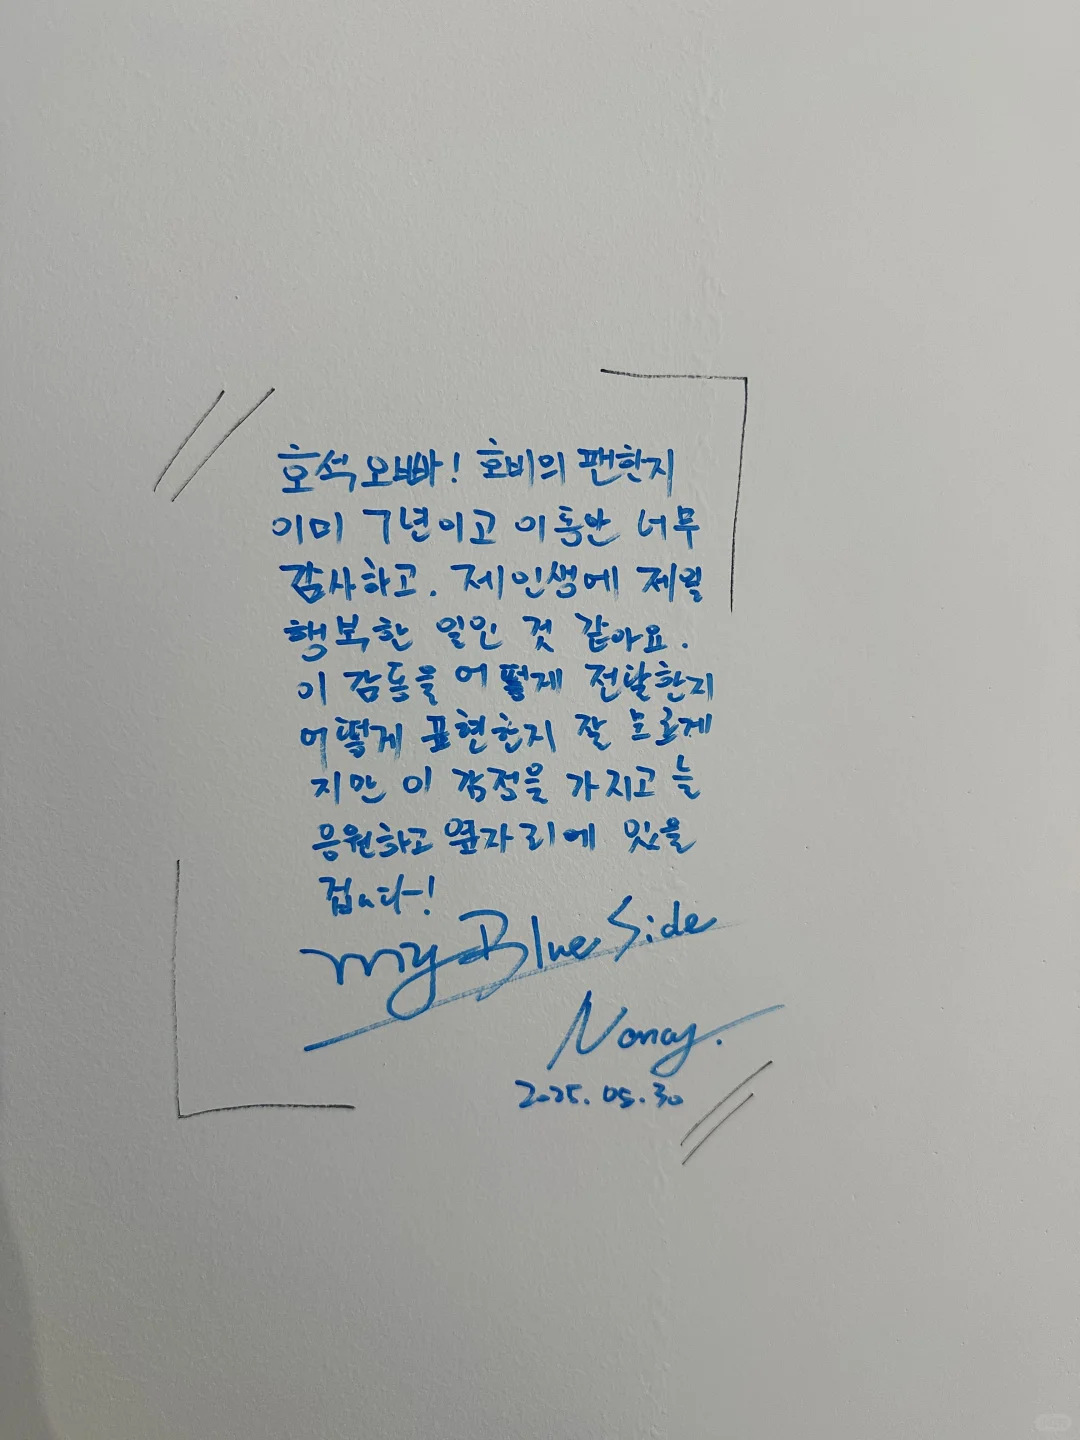 호석오빠! 호비의 팬한지
이미 7년이고 이동안 너무
감사하고. 제인생에 제일
행복한 일인 것 같아요.
이 감동을 어떻게 전달한지
어떻게 표현한지 잘 모르게
지만 이 걱정을 가지고 늘
응원하고 옆자리에 있을
겁니다!
My Blue Side
Nancy.
2025.05.30